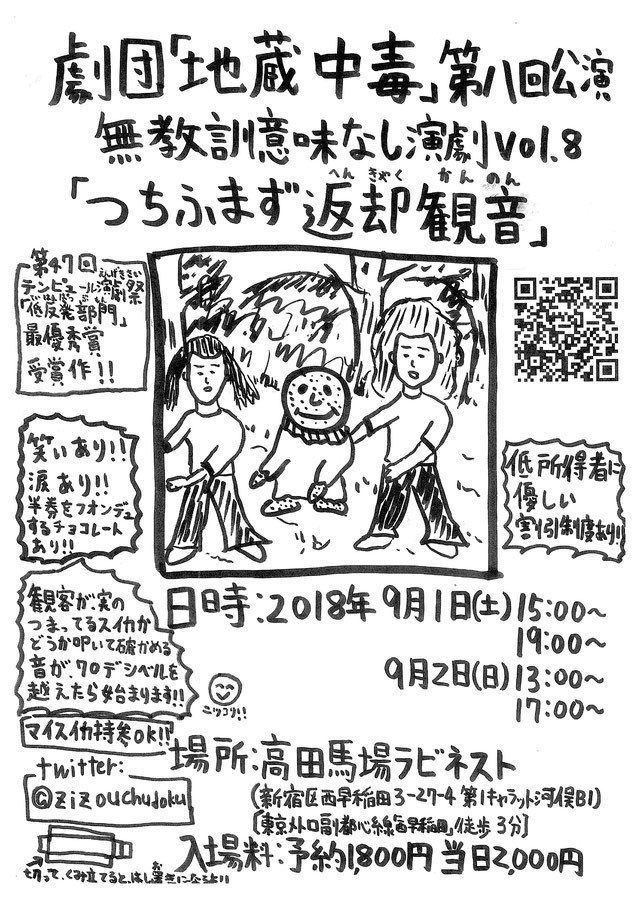 劇団「地蔵中毒」第八回公演
無教訓意味なし演劇vol.8
へんきゃく かんのん
「つちふまず返却観音」
第47回
えんげきさい
テンピュール演劇祭
「低反発部門」
最優秀賞
受賞作!!
笑いあり!!
涙あり!!
半券をフォンデュ
するチョコレート
あり!!
低所得者に
優しい
割引制度あり!!
観客が、実の
つまってるスイカか
どうか叩いて確かめる
音が、70デシベルを
越えたら始まります!!
ニッコリ!!
マイスイカ持参OK!!
日時:2018年9月1日(土)15:00~
19:00~
9月2日(日)13:00~
17:00~
場所:高田馬場ラビネスト
(新宿区西早稲田3-27-4 第1キャラット河俣B1)
[東京メトロ副都心線「西早稲田」徒歩3分]
入場料:予約1,800円 当日2,000円
twitter:
@zizouchudoku
切って、くみ立てると、はし置きになるよ!!